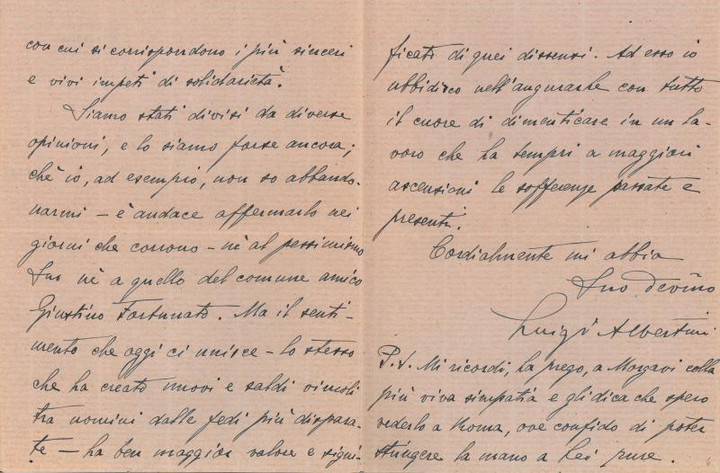 con cui si corrispondono i più sinceri
e vivi impeti di solidarietà.
Siamo stati divisi da diverse
opinioni, e lo siamo forse ancora;
chè io, ad esempio, non so abbando-
narmi – è audace affermarlo nei
giorni che corrono – nè al pessimismo
Suo nè a quello del comune amico
Giustino Fortunato. Ma il senti-
mento che oggi ci unisce – lo stesso
che ha creato nuovi e saldi vincoli
tra uomini dalle fedi più dispara-
te – ha ben maggior valore e signi-
ficato di quei dissensi. Ad esso io
ubbidisco nell'augurarle con tutto
il cuore di dimenticare in un la-
voro che la tempri a maggiori
ascensioni le sofferenze passate e
presenti.
Cordialmente mi abbia
Suo dev̄mo
Luigi Albertini
P.S. Mi ricordi, la prego, a Morgavi colla
più viva simpatia e gli dica che spero
vederlo a Roma, ove confido di poter
stringere la mano a Lei pure.